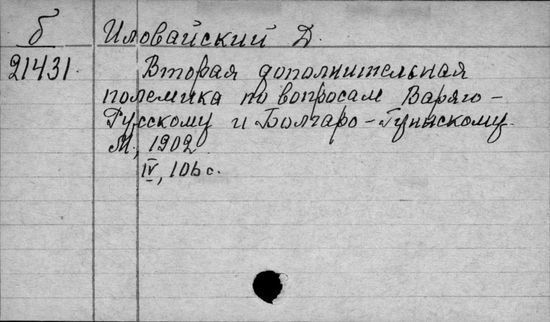 б Иловайский Д.
21431. Вторая дополнительная
полемика по вопросам Варяго-
Русскому и Болгаро-Гуннскому.
М., 1902
IV, 106 с.